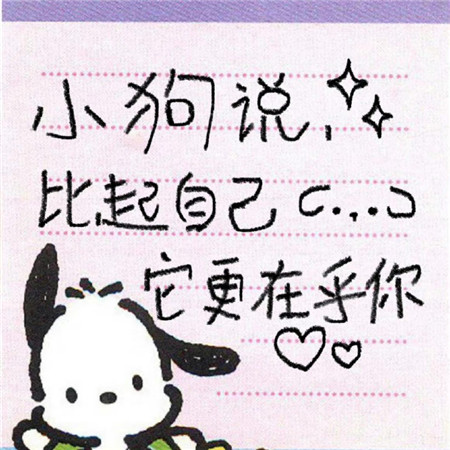 小狗说,
比起自己
它更在乎你